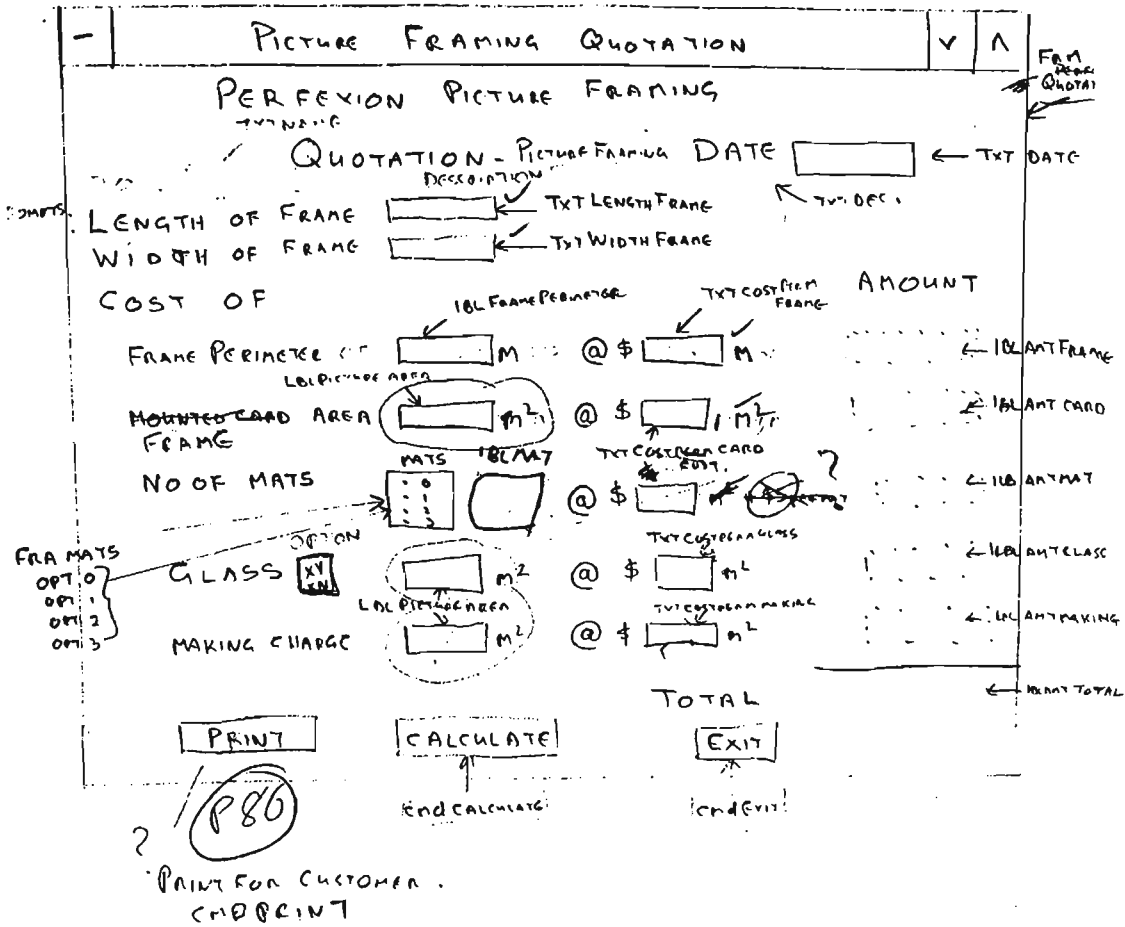 - PICTURE FRAMING QUOTATION V Λ
FRM
QUOTAT
PERFEXION PICTURE FRAMING
TXT NAME
QUOTATION - PICTURE FRAMING DATE ← TXT DATE
DESCRIPTION
TXT DEC.
LENGTH OF FRAME TXT LENGTH FRAME
WIDTH OF FRAME TXT WIDTH FRAME
COST OF AMOUNT
lBL FRAME PERIMETER TXT COST PERM FRAME
FRAME PERIMETER OF M @ $ M lBL AMT FRAME
LBL PICTURE AREA
MOUNTED CARD AREA m² @ $ M² lBL AMT CARD
FRAME
TXT COST PERM CARD
MATS lBL MAT
NO OF MATS @ $ ? lBL AMT MAT
OPTION TXT COST PERM GLASS
FRA MATS
OPT 0
OPT 1
OPT 2
OPT 3
GLASS m² @ $ m² lBL AMT GLASS
LBL PICTURE AREA TXT COST PERM MAKING
MAKING CHARGE m² @ $ m² LBL AMT MAKING
TOTAL lBL AMT TOTAL
PRINT CALCULATE EXIT
P86 cmd CALCULATE cmd EXIT
?
PRINT FOR CUSTOMER.
CMD PRINT